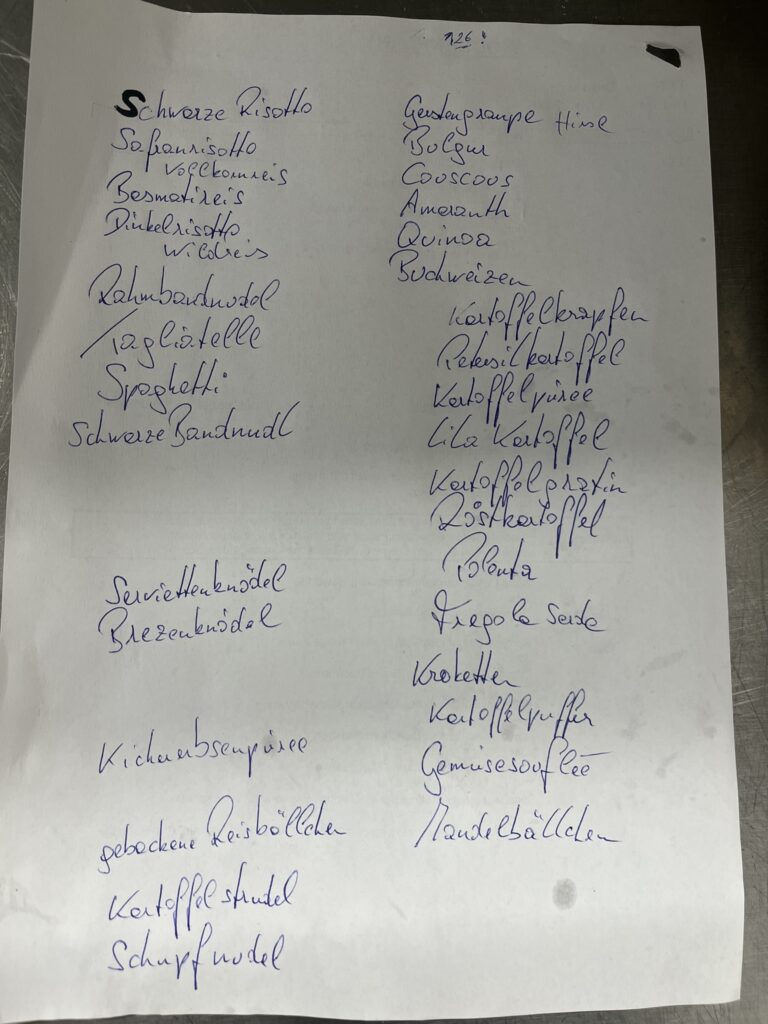 1,26 !
Schwarze Risotto
Safranrisotto
Vollkornreis
Basmatireis
Dinkelrisotto
Wildreis
Rahmbandnudel
Tagliatelle
Spaghetti
Schwarze Bandnudl
Serviettenknödel
Brezenknödel
Kichererbsenpüree
gebackene Reisbällchen
Kartoffelstrudel
Schupfnudel
Gerstengraupe Hirse
Bulgur
Couscous
Amaranth
Quinoa
Buchweizen
Kartoffelkrapfen
Petersilkartoffel
Kartoffelpüree
Lila Kartoffel
Kartoffelgratin
Röstkartoffel
Polenta
Fregola
Kroketten
Kartoffelpuffer
Gemüsesouflee
Mandelbällchen